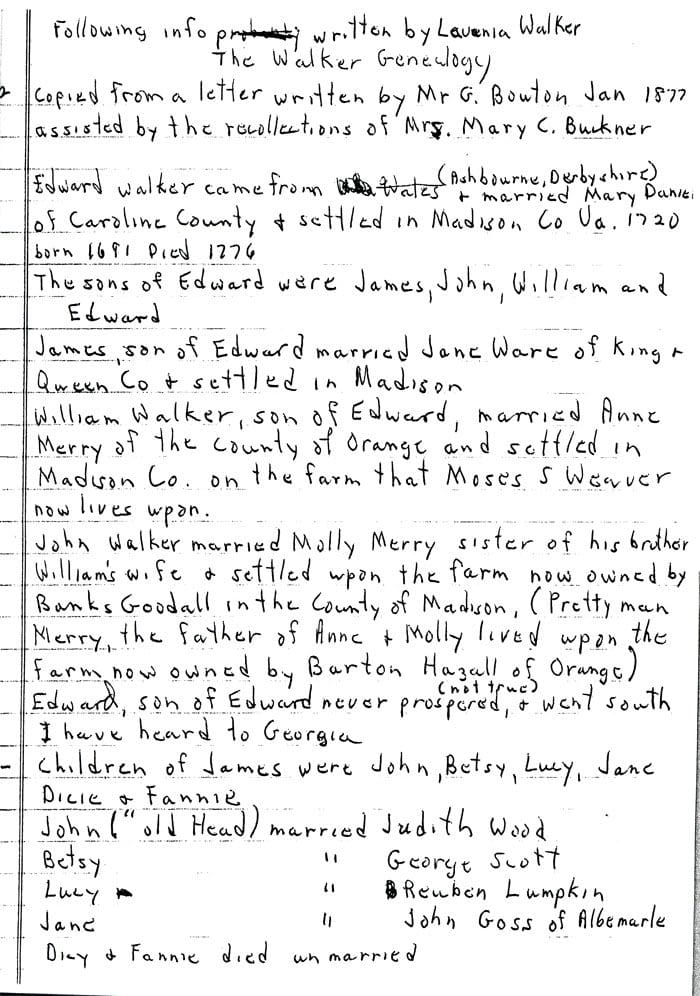 Following info probably written by Lavenia Walker
The Walker Genealogy
Copied from a letter written by Mr G. Bouton Jan 1877
assisted by the recollections of Mrs. Mary C. Buckner
(Ashbourne, Derbyshire)
Edward walker came from Wales + married Mary Daniel
of Caroline County + settled in Madison Co Va. 1720
born 1691 Died 1776
The sons of Edward were James, John, William and
Edward
James, son of Edward married Jane Ware of King +
Qween Co + settled in Madison
William Walker, son of Edward, married Anne
Merry of the County of Orange and settled in
Madison Co. on the farm that Moses S Weaver
now lives upon.
John Walker married Molly Merry sister of his brother
William's wife & settled upon the farm now owned by
Banks Goodall in the County of Madison, (Pretty man
Merry, the father of Anne + Molly lived upon the
farm now owned by Barton Hazall of Orange)
(not true)
Edward, son of Edward never prospered, + went south
I have heard to Georgia
Children of James were John, Betsy, Lucy, Jane
Dicie + Fannie
John ("old Head) married Judith Wood
Betsy " George Scott
Lucy " Reuben Lumpkin
Jane " John Goss of Albemarle
Dicy & Fannie died unmarried